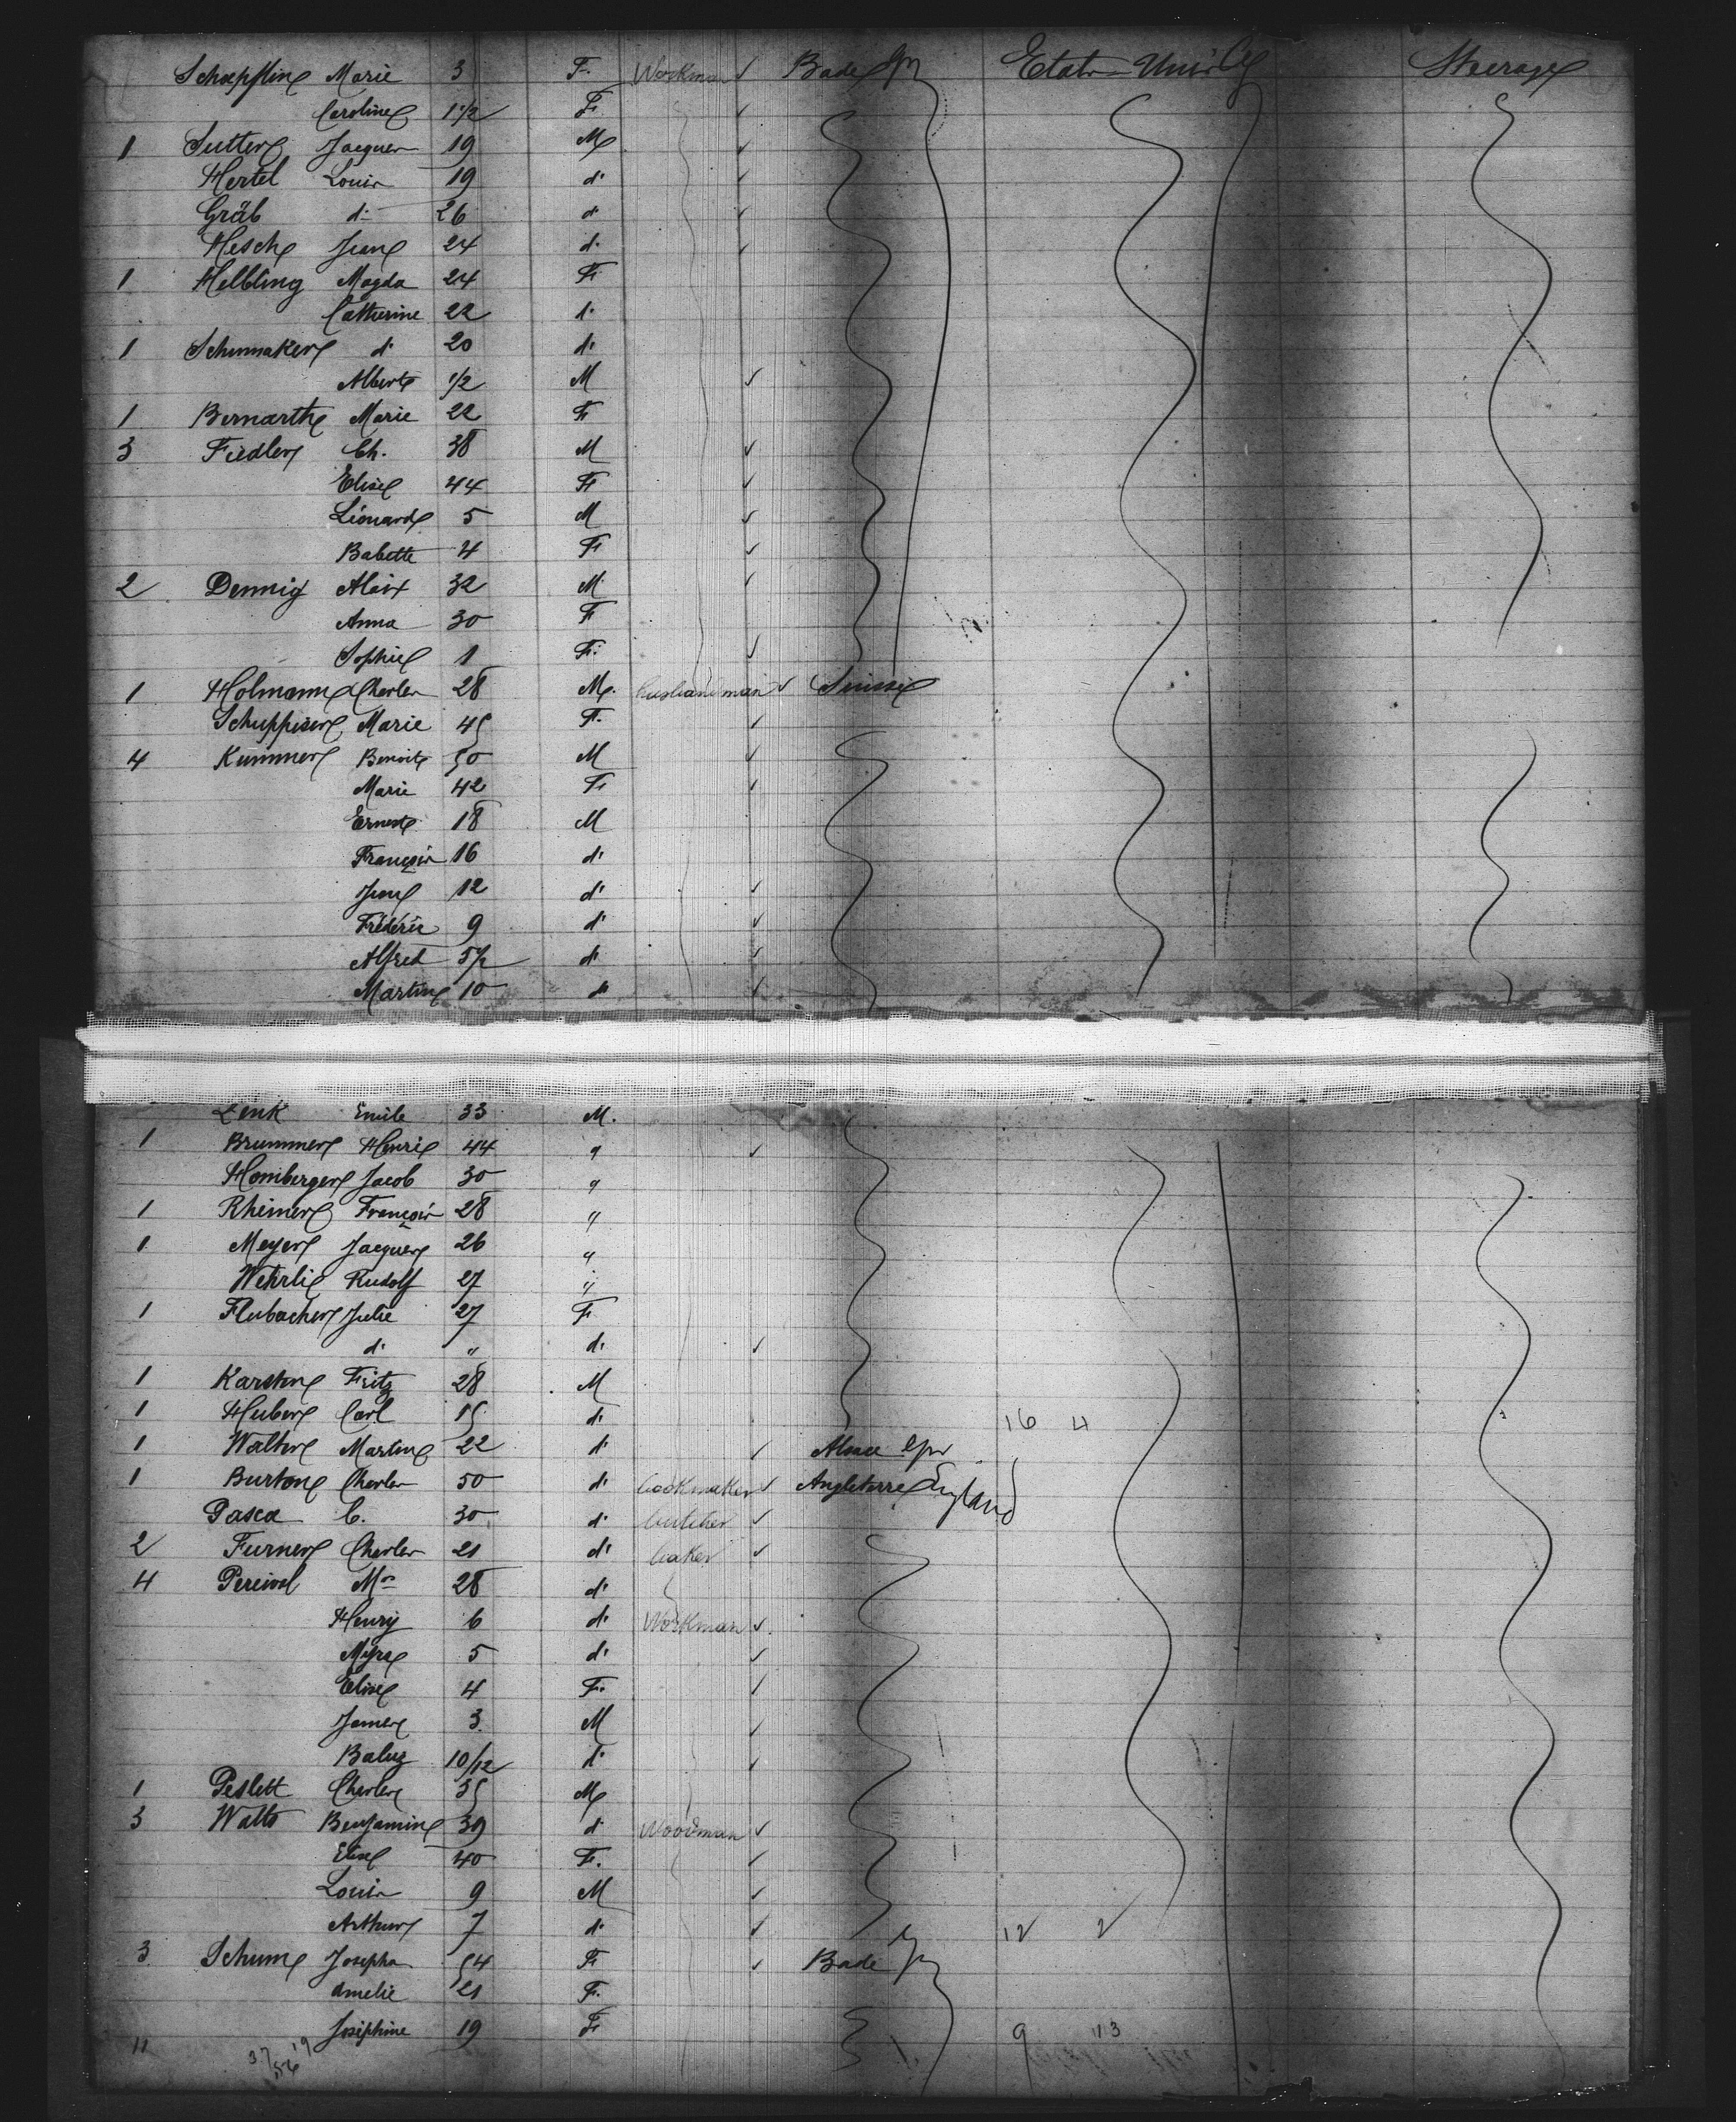 Schoepflin Marie 3 F. Workman ✓ Bade Etats-Unis Steerage
Caroline 1 1/2 F. ✓
1 Sutter Jacques 19 M ✓
Hertel Louis 19 d° ✓
Gräb d° 26 d° ✓
Hesch Jean 24 d° ✓
1 Helbling Magda 24 F
Catherine 22 d°
1 Schumaker d° 20 d°
Albert 1/2 M ✓
1 Bernarth Marie 22 F
3 Fiedler Ch. 38 M ✓
Elise 44 F ✓
Léonard 5 M ✓
Babette 4 F ✓
2 Dennig Aloix 32 M ✓
Anna 30 F
Sophie 1 F. ✓
1 Holmann Charles 28 M. husbandman ✓ Suisse
Schuppiser Marie 45 F. ✓
4 Kummer Benoit 50 M ✓
Marie 42 F ✓
Ernest 18 M
François 16 d°
Jean 12 d° ✓
Fréderic 9 d° ✓
Alfred 5 1/2 d° ✓
Martin 10 d° ✓
Zenk Emile 33 M.
1 Brummer Henri 44 " ✓
Homberger Jacob 30 "
1 Rheiner François 28 "
1 Meyer Jacques 26 "
Wehrli Rudolf 27 "
1 Flubacher Julie 27 F
d° " d° ✓
1 Karsten Fritz 28 M
1 Huber Carl 15 d° 16 4
1 Walter Martin 22 d° ✓ Alsace
1 Burton Charles 50 d° bookmaker ✓ Angleterre England
Pasca C. 30 d° butcher ✓
2 Furner Charles 21 d° baker ✓
4 Percival Mrs 28 d°
Henry 6 d° Workman ✓
Myra 5 d° ✓
Elise 4 F. ✓
James 3 M ✓
Baby 10/12 d° ✓
1 Peslett Charles 35 M
3 Watts Benjamin 39 d° Woodman ✓
Elise 40 F. ✓
Louis 9 M ✓
Arthur 7 d° ✓ 12 2
3 Schum Josepha 54 F ✓ Bade
Amelie 21 F.
Joséphine 19 F 9 113
11 37 56 19